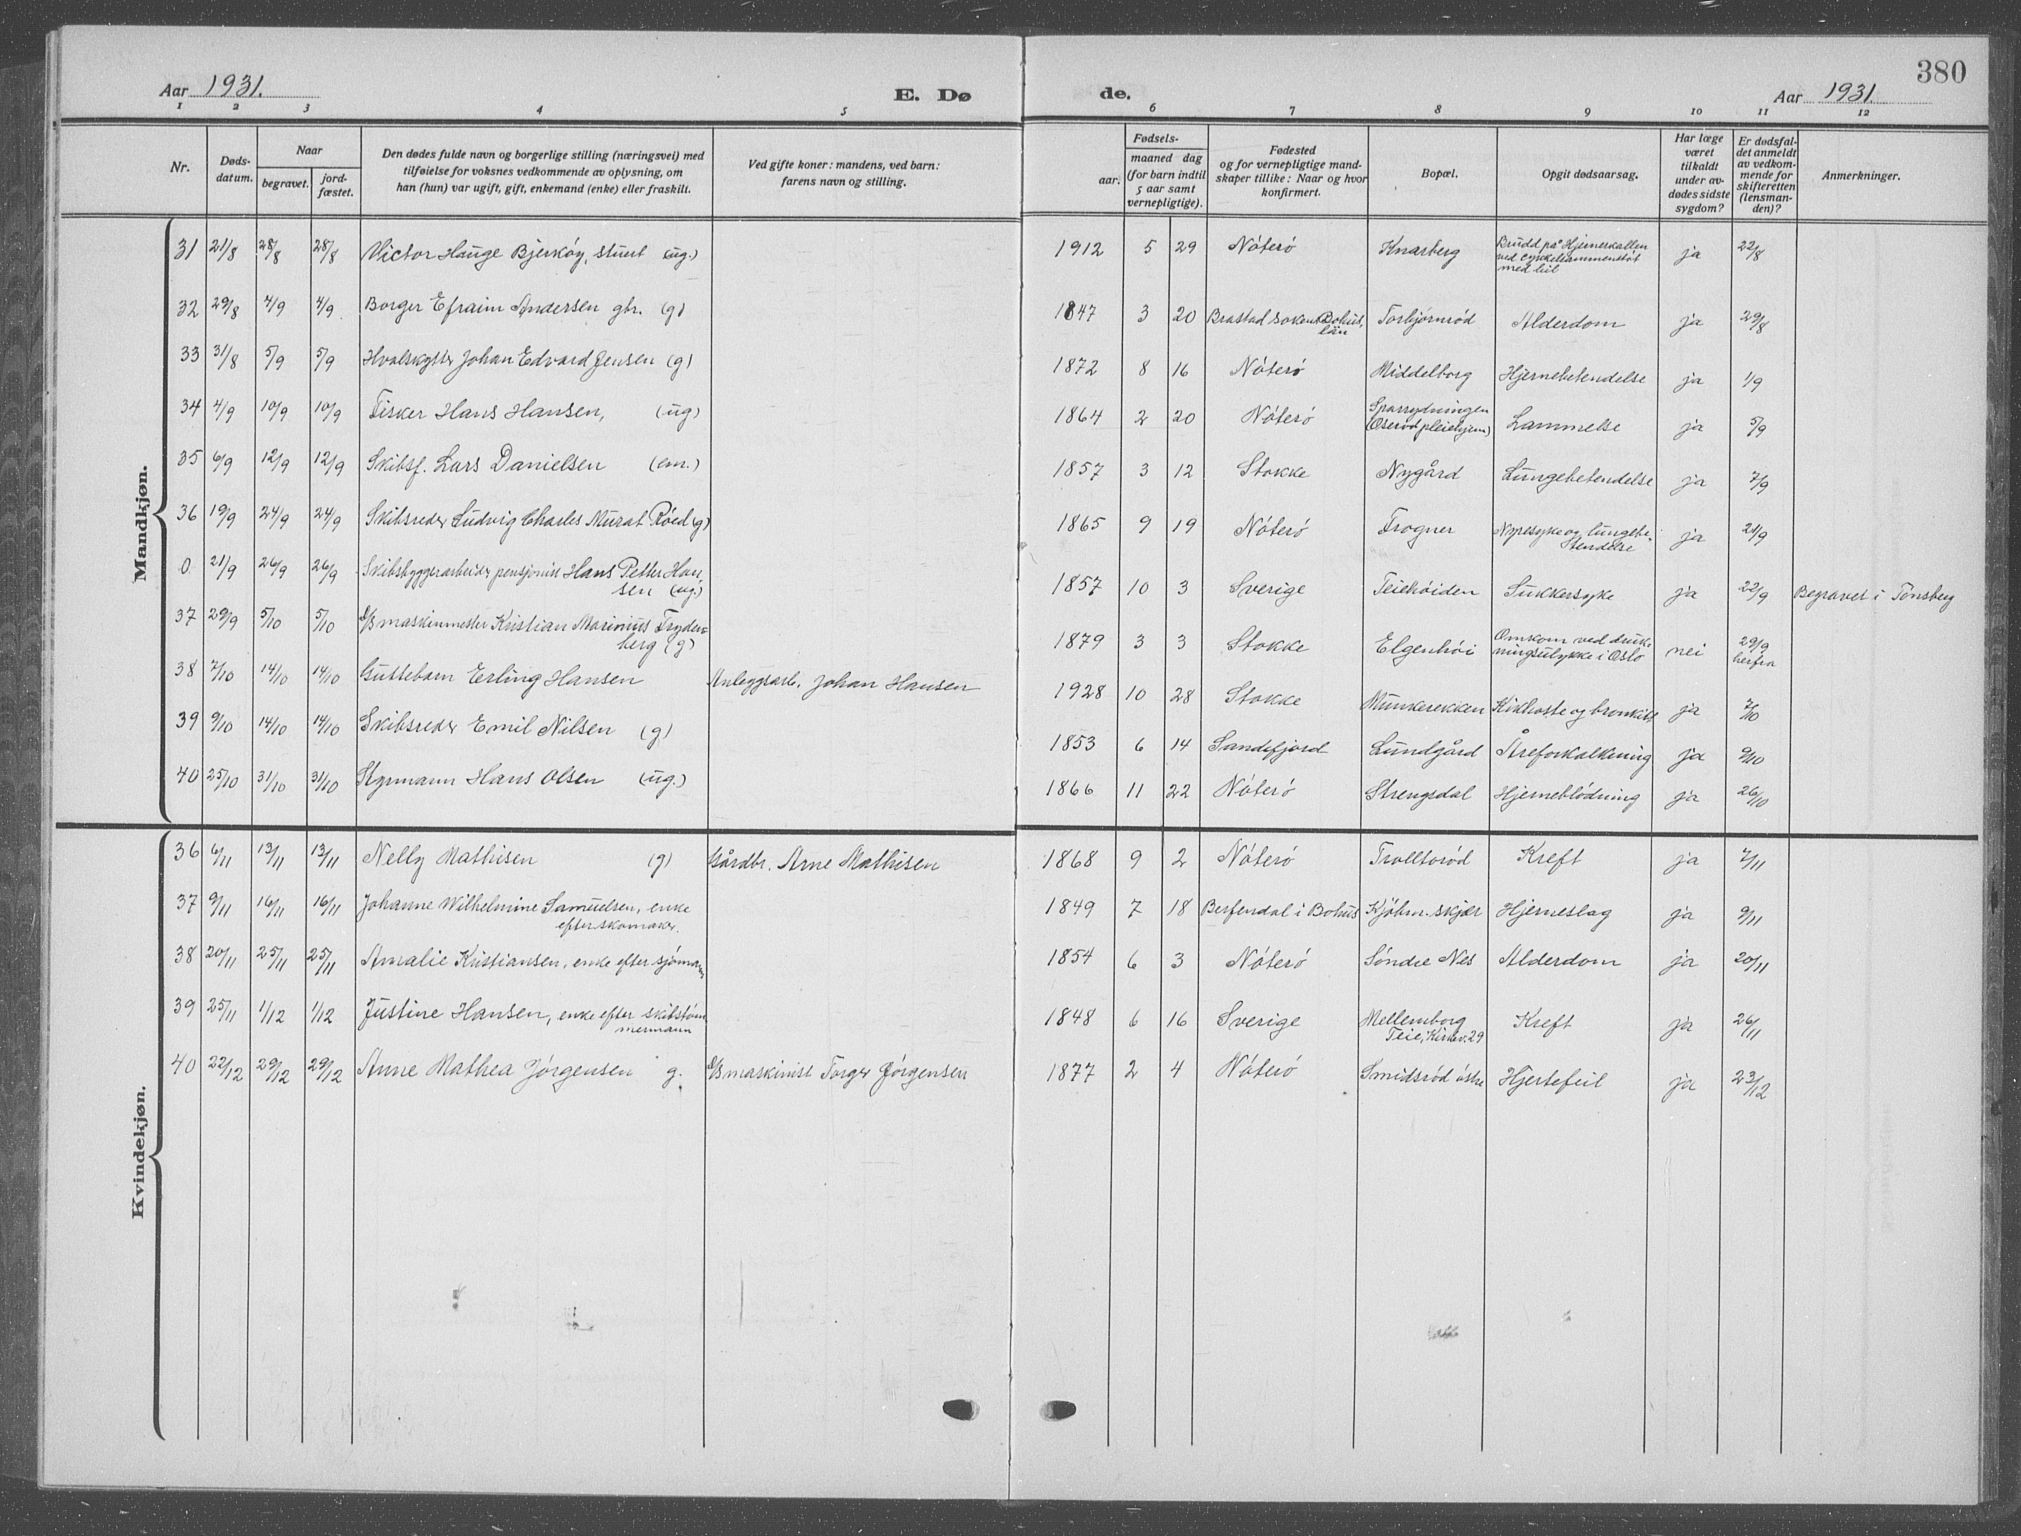 380
Aar 1931. E. Dø de. Aar 1931.
1 2 3 4 5 6 7 8 9 10 11 12
Nr. Døds-datum. Naar begravet. jord-fæstet. Den dødes fulde navn og borgerlige stilling (næringsvei) med tilføielse for voksnes vedkommende av oplysning, om han (hun) var ugift, gift, enkemand (enke) eller fraskilt. Ved gifte koner: mandens, ved barn: farens navn og stilling. Fødsels- aar. maaned dag (for barn indtil 5 aar samt vernepligtige). Fødested og for vernepligtige mandskaper tillike: Naar og hvor konfirmert. Bopæl. Opgit dødsaarsag. Har læge været tilkaldt under avdødes sidste sygdom? Er dødsfaldet anmeldt av vedkommende for skifteretten (lensmanden)? Anmerkninger.
Mandkjøn.
31 21/8 28/8 28/8 Victor Hauge Bjerkøy, stuert (ug.) 1912 5 29 Nöterö Knarberg Brudd på Hjerneskallen ved cykkelsammenstöt med bil ja 22/8
32 29/8 4/9 4/9 Borger Efraim Andersen gbr. (g) 1847 3 20 Brastad soken Bohus län Torbjörnröd Alderdom ja 29/8
33 31/8 5/9 5/9 Hvalskytter Johan Edvard Jensen (g) 1872 8 16 Nöterö Middelborg Hjernebetendelse ja 1/9
34 4/9 10/9 10/9 Fisker Hans Hansen, (ug) 1864 2 20 Nöterö (Oseröd pleiehjem) Lammelse ja 5/9
35 6/9 12/9 12/9 Skibsf. Lars Danielsen (em.) 1857 3 12 Stokke Nygård Lungebetendelse ja 7/9
36 19/9 24/9 24/9 Skibsreder Ludvig Charles Murat Röed (g) 1865 9 19 Nöterö Trogner Nyresyke og lungebetendelse ja 21/9
0. 21/9 26/9 26/9 Skibsbyggerarbeider pensjonist Hans Petter Hansen (ug.) 1857 10 3 Sverige Teiehöiden Sukkersyke ja 22/9 Begravet i Tønsberg
37 29/9 5/10 5/10 H/B maskinmester Kristian Marinius Frydenberg (g) 1879 3 3 Stokke Elgenhöi Omkom ved drukningsulykke i Oslo nei 29/9 herfra
38 7/10 14/10 14/10 Guttebarn Erling Hansen Anleggsarb. Johan Hansen 1928 10 28 Stokke Munkerekken Kikhoste og bronkitt ja 7/10
39 9/10 14/10 14/10 Skibsreder Emil Nilsen (g) 1853 6 14 Sandefjord Lundgård Åreforkalkning ja 9/10
40 25/10 31/10 31/10 Styrmann Hans Olsen (ug.) 1866 11 22 Nöterö Strengsdal Hjerneblödning ja 26/10
Kvindekjøn.
36 6/11 13/11 13/11 Nelly Mathisen (g) Gårdbr. Arne Mathisen 1868 9 2 Nöterö Trolltoröd Kreft ja 7/11
37 9/11 16/11 16/11 Johanne Wilhelmine Samuelsen, enke efter skomaker. 1849 7 18 Berfendal i Bohus Kjöbm.skjær Hjerneslag ja 9/11
38 20/11 25/11 25/11 Amalie Kristiansen, enke efter sjömann 1854 6 3 Nöterö Söndre Nes Alderdom ja 20/11
39 25/11 1/12 1/12 Justine Hansen, enke efter skibstömmermann 1848 6 16 Sverige Mellemborg Teie, Kirkev. 29 Kreft ja 26/11
40 22/12 29/12 29/12 Anne Mathea Jörgensen g. maskinist Torger Jörgensen 1877 2 4 Nöterö Smidsröd östre Hjertefeil ja 23/12